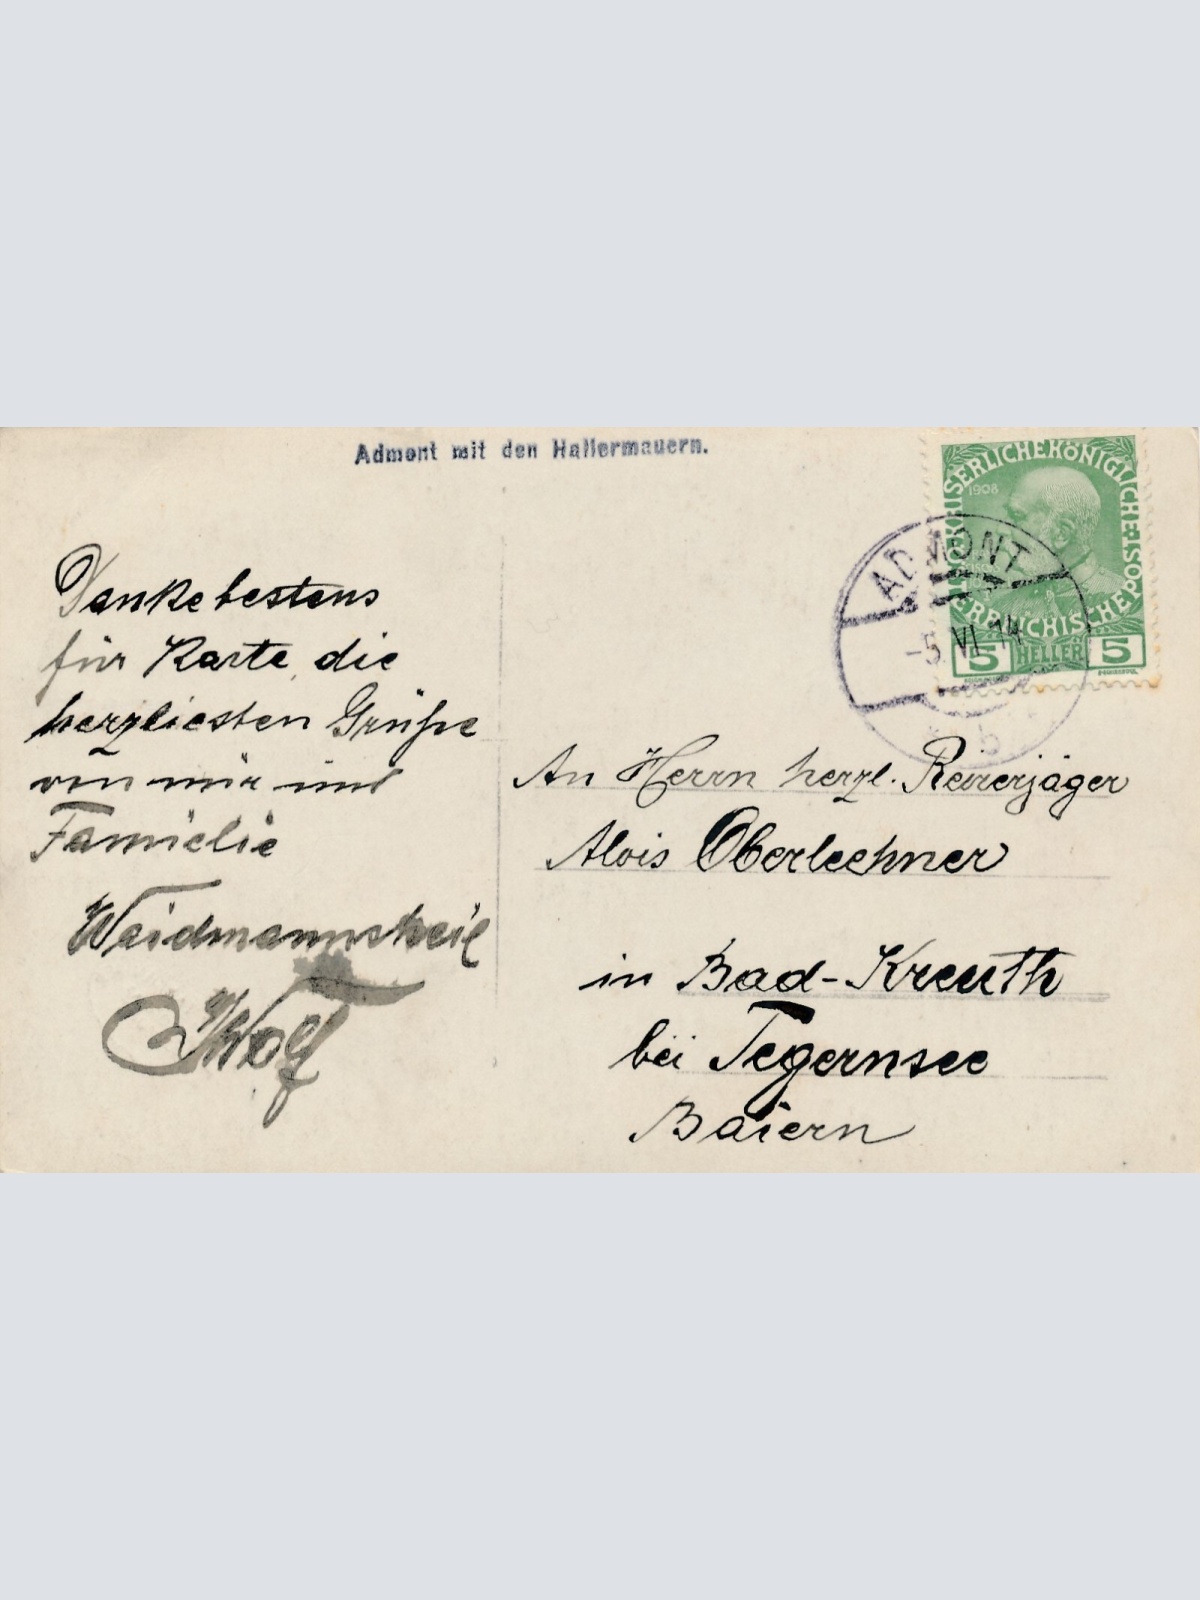 Admont mit den Hallermauern.
Danke bestens
für Karte, die
herzliesten Grüße
von mir und
Familie
Weidmannsheil
Wolf
KAISERLICHEKÖNIGLICHE
ÖSTERREICHISCHE POST
1908
5 HELLER 5
ADMONT
-5 VI 14
b
An Herrn herzl. Revierjäger
Alois Oberlechner
in Bad-Kreuth
bei Tegernsee
Baiern